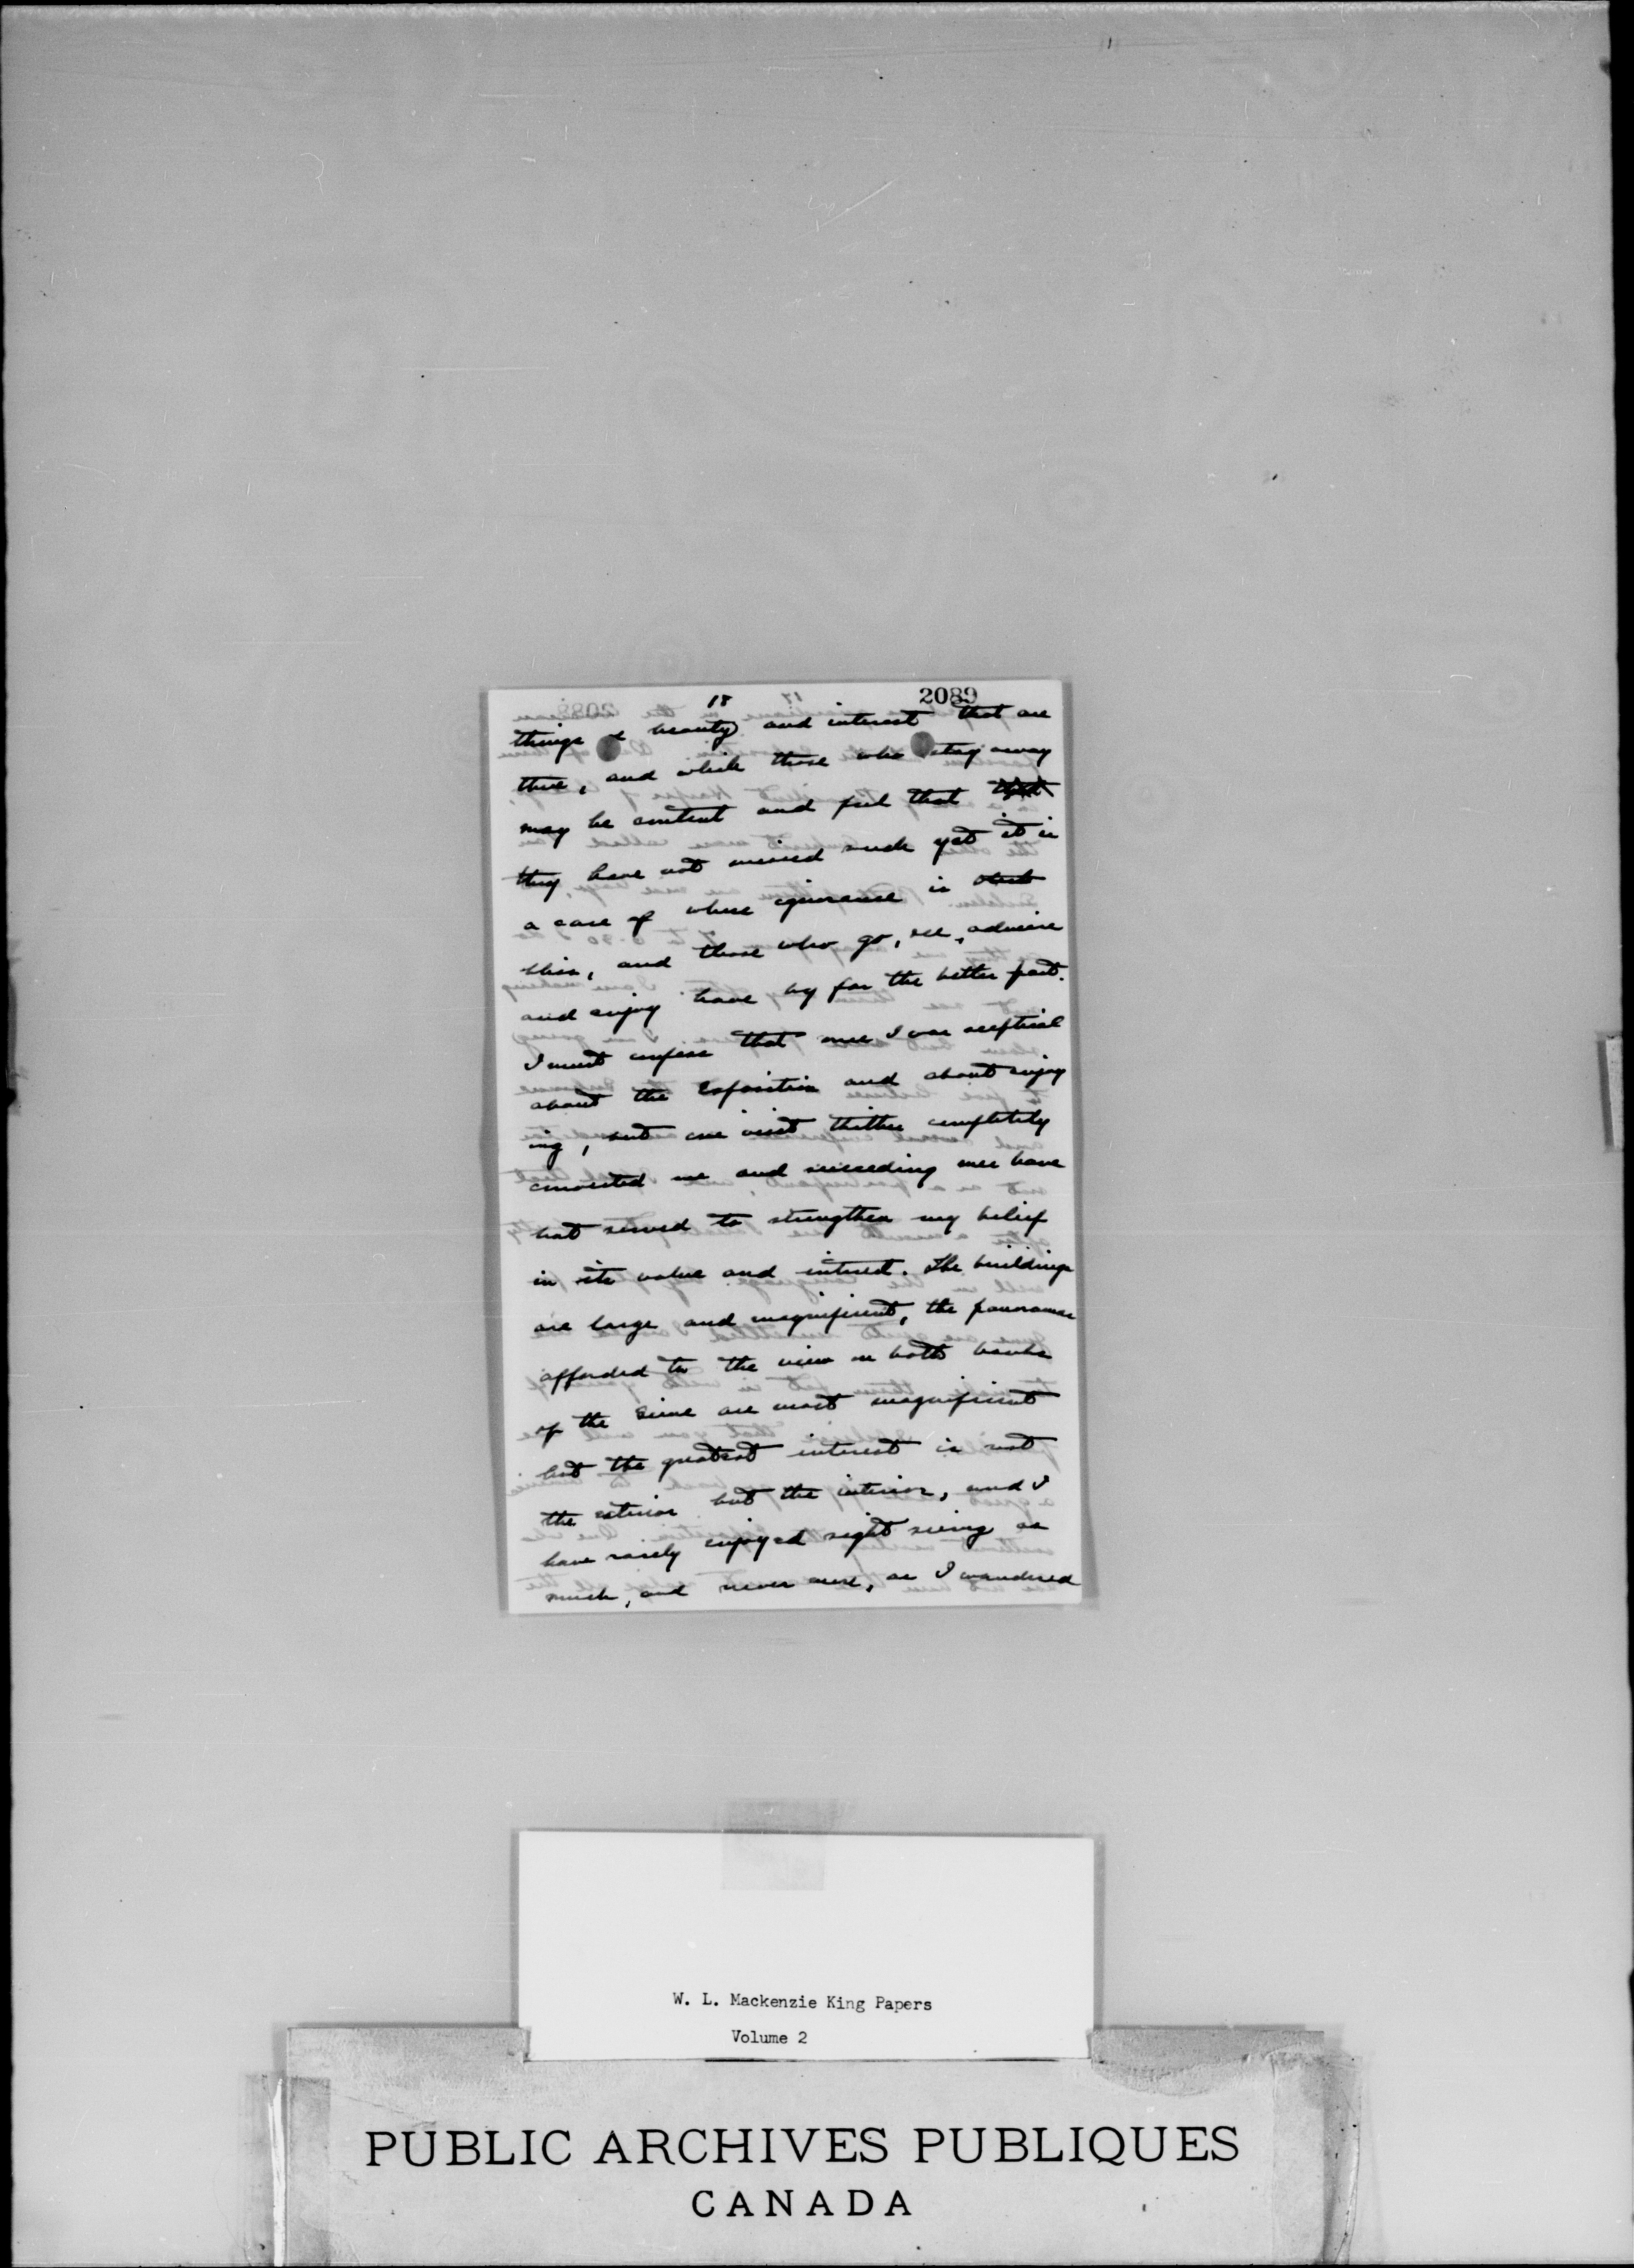 18
2089
things & beauty and interest that are
there, and while those who stay away
may be content and feel that
they have not missed much yet it is
a case of where ignorance is
bliss, and those who go, see, admire
and enjoy have by far the better part.
I must confess that once I was sceptical
about the Exposition and about enjoy
ing, but one visit thither completely
converted me and succeeding ones have
but served to strengthen my belief
in its value and interest. The buildings
are large and magnificent, the panoramas
afforded to the view on both banks
of the Seine are most magnificent
but the greatest interest is not
the exterior but the interior, and I
have rarely enjoyed sight seeing as
much, and never more, as I wandered
W. L. Mackenzie King Papers
Volume 2
PUBLIC ARCHIVES PUBLIQUES
CANADA